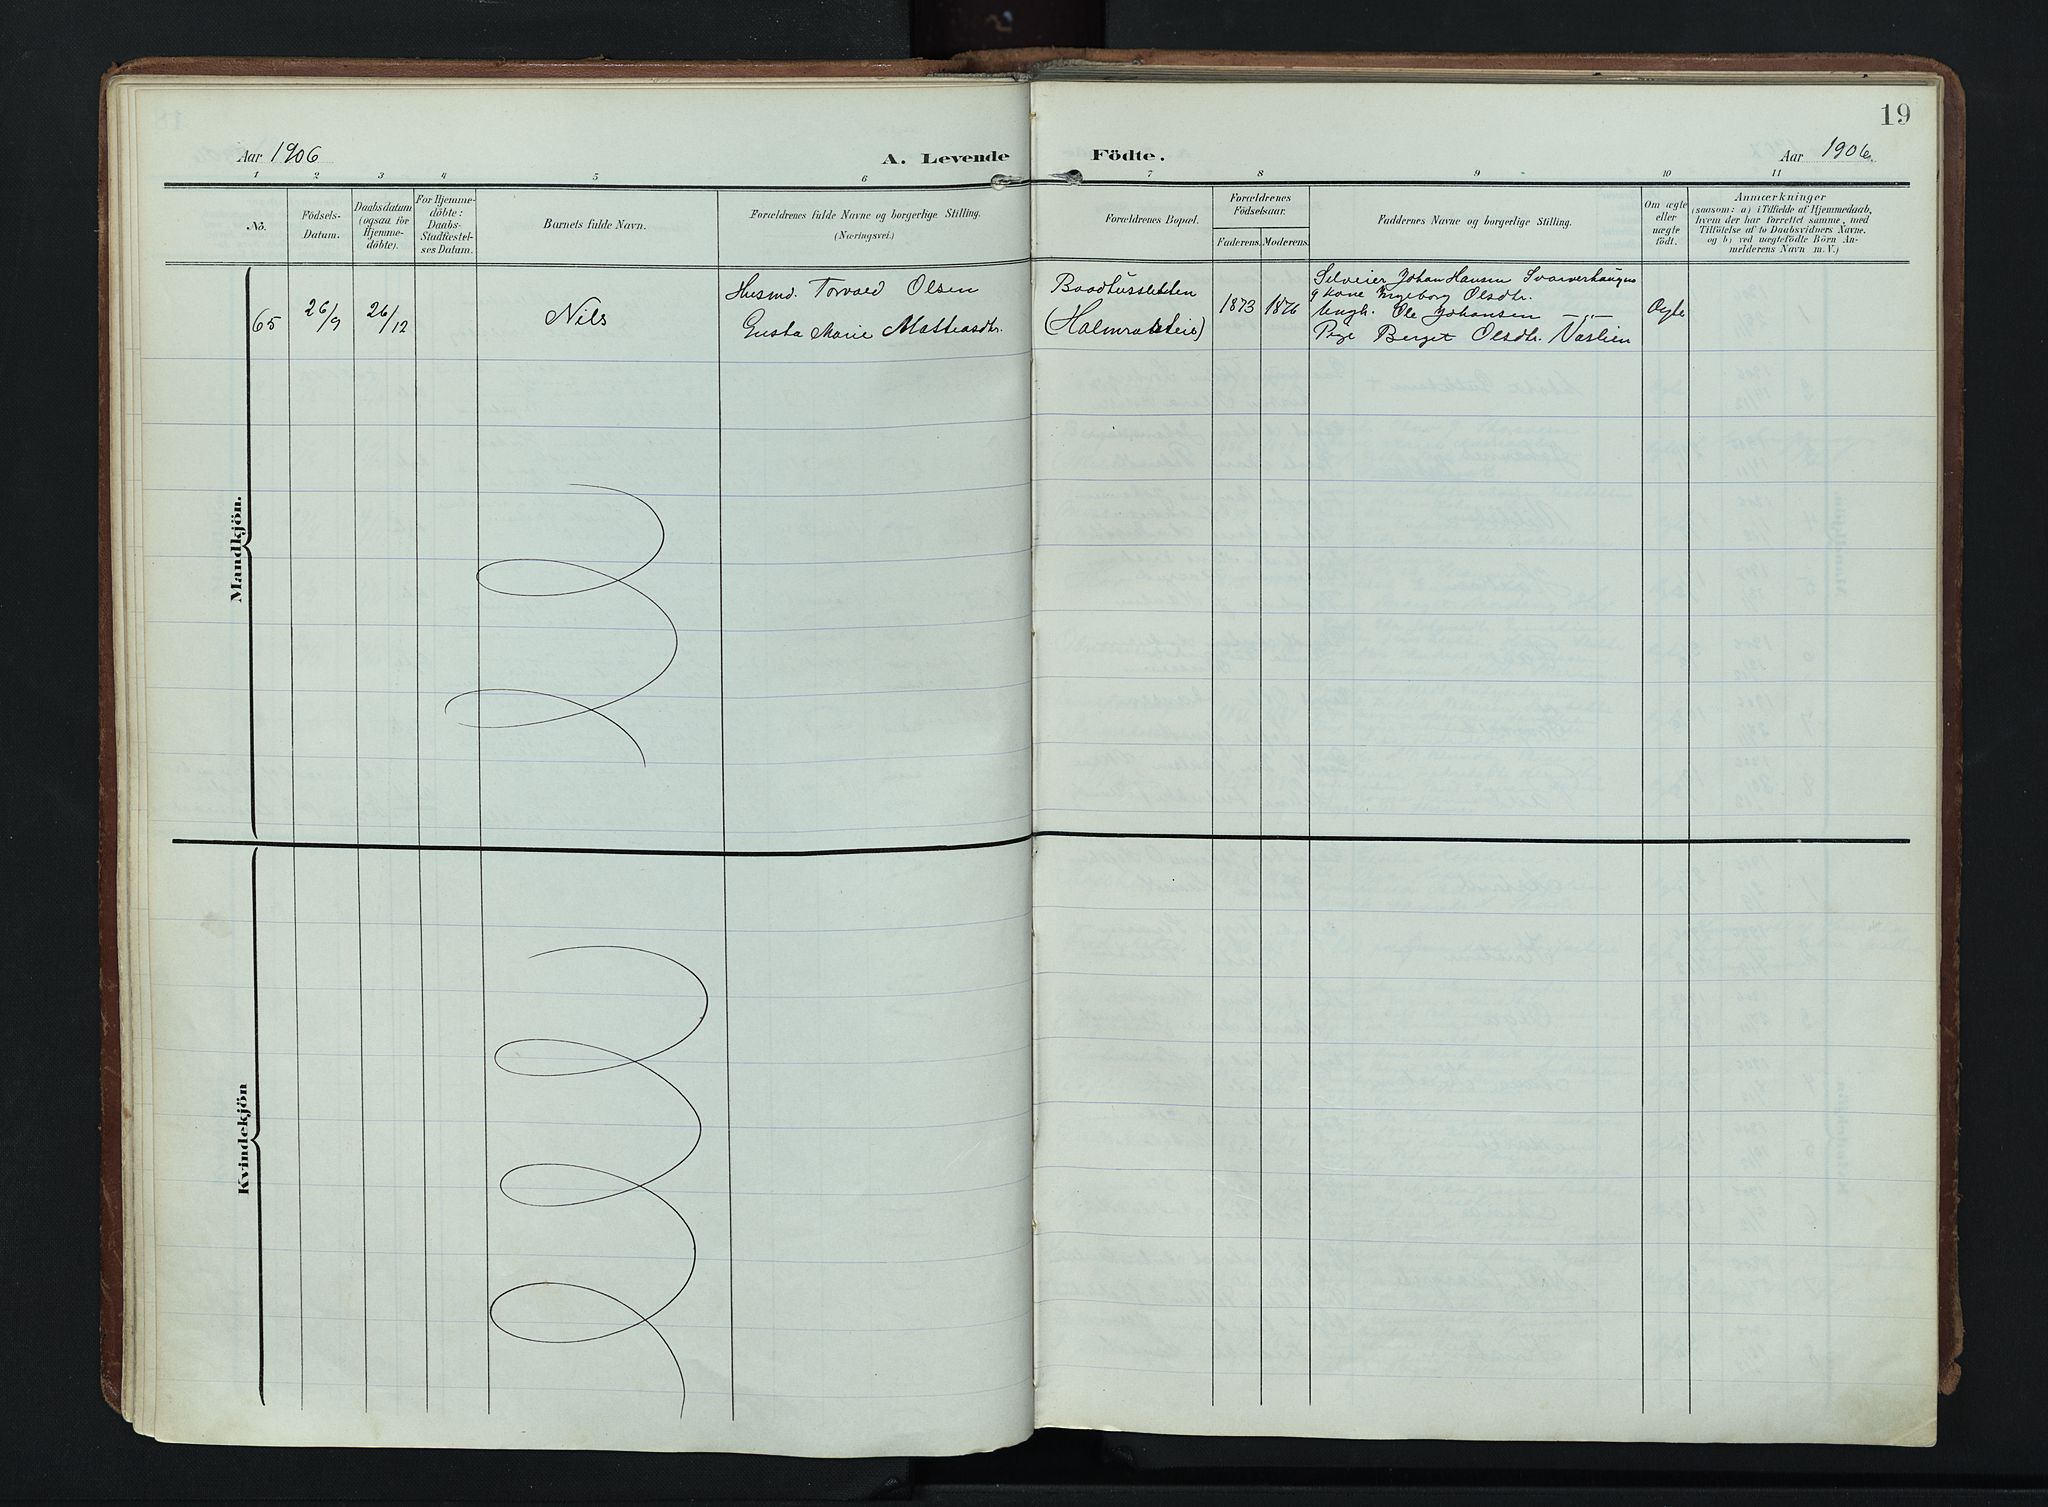 19
Aar 1906
A. Levende Födte.
Aar 1906.
1 2 3 4 5 6 7 8 9 10 11
No.
Födsels-
Datum.
Daabsdatum
(ogsaa for
Hjemme-
döbte).
For Hjemme-
döbte:
Daabs-
Stadfæstel-
ses Datum.
Barnets fulde Navn.
Forældrenes fulde Navne og borgerlige Stilling.
(Næringsvei.)
Forældrenes Bopæl.
Forældrenes
Födselsaar.
Faderens. Moderens.
Faddernes Navne og borgerlige Stilling.
Om ægte
eller
uægte
födt.
Anmærkninger
(saasom: a) i Tilfælde af Hjemmedaab,
hvem der har forrettet samme, med
Tilföielse af to Daabsvidners Navne.
og b) ved uægtefödte Börn An-
melderens Navn m. V.)
Mandkjön.
65 26/9 26/12 Nils
Husmd. Torvald Olsen
Gusta Marie Mathiasdtr.
(Halmrasteie)
1873 1876
Selveier Johan Hansen
g Kone Ingeborg Olsdtr.
Ungk. Ole Johansen —"—
Pige Berget Olsdtr.
Ægte
Kvindekjön